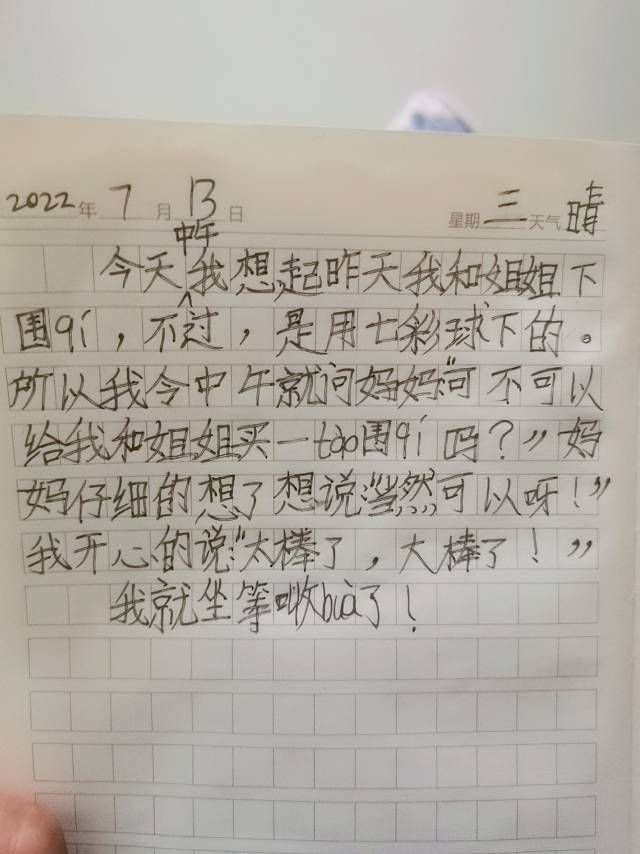 2022年 7月 13日 星期三 天气 晴
中午
今天我想起昨天我和姐姐下
围qí，不过，是用七彩球下的。
所以我今中午就问妈妈“可不可以
给我和姐姐买一tào围qí吗？”妈
妈仔细的想了想说“当然可以呀！”
我开心的说“太棒了，大棒了！”
我就坐等收buà了！